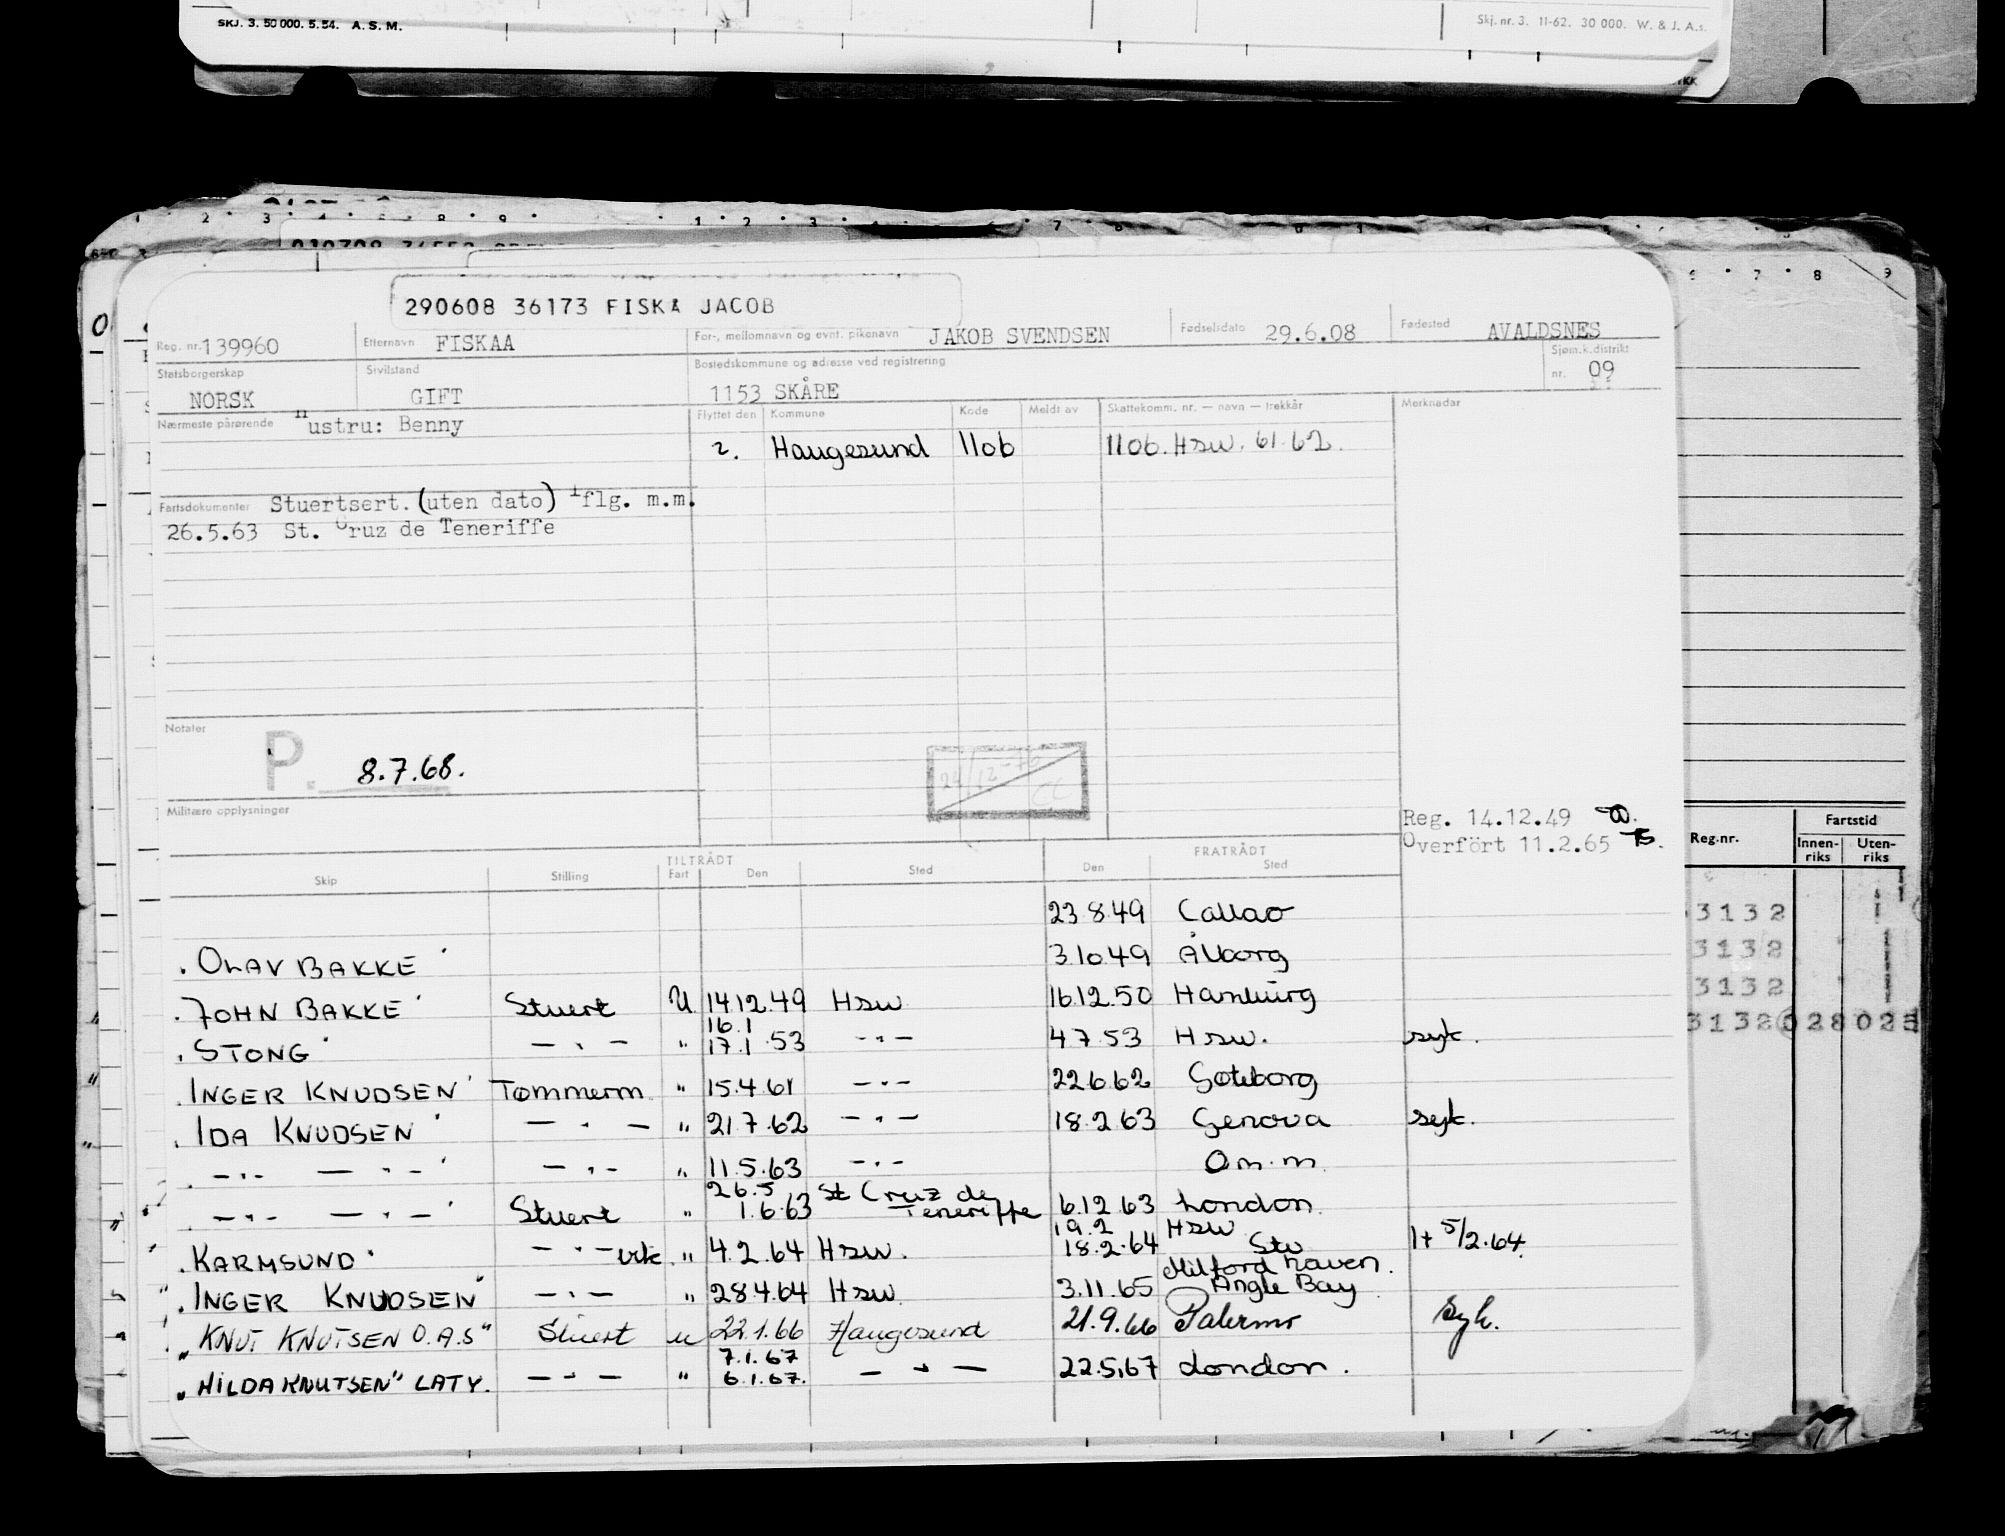 SKJ. 3. 50 000. 5.54. A. S. M.
Skj. nr. 3. 11-62. 30 000. W. & J. A.s.
290608 36173 FISKA JACOB
Reg. nr. 139960 Etternavn FISKAA For-, mellomnavn og evnt. pikenavn JAKOB SVENDSEN Fødselsdato 29.6.08 Fødested AVALDSNES
Statsborgerskap Sivilstand Bostedskommune og adresse ved registrering Sjøm.k.distrikt
NORSK GIFT 1153 SKÅRE nr. 09
Nærmeste pårørende "ustru: Benny Flyttet den Kommune Kode Meldt av Skattekomm. nr. — navn — trekkår Merknader
2. Haugesund 1106 1106. Hsw. 61.62.
Fartsdokumenter Stuertsert. (uten dato) flg. m.m.
26.5.63 St. Cruz de Teneriffe
Notater
P. 8.7.68.
24/12-76
CC
Militære opplysninger
Reg. 14.12.49
Overfört 11.2.65
Reg.nr. Fartstid
Innen-riks Uten-riks
TILTRÅDT FRATRÅDT
Skip Stilling Fart Den Sted Den Sted
23 8.49 Callao
3132
. OLAV BAKKE 3.10.49 Ålborg
3132
. JOHN BAKKE Stuert U 14.12.49 Hsw 16.12.50 Hamburg
3132
16.1
. STONG — " — " 17.1.53 -"- 4 7.53 Hsw. syk.
3132 028 025
. INGER KNUDSEN Tømmerm. " 15.4.61 — " — 22.6.62 Gøteborg
. IDA KNUDSEN — " — " 21.7.62 — " — 18.2.63 Genova syk.
. -"- — " — — " — " 11.5.63 — " — Om.m.
. -"- — " — Stuert " 26.5
1.6.63 St Cruz de Teneriffe 6.12.63 London.
19.2 Hsw
. KARMSUND — " — vik. " 4.2.64 Hsw. 18.2.64 Stv 1t 5/2.64.
Milford haven.
. INGER KNUDSEN — " — " 28.4.64 Hsw. 3.11.65 Angle Bay
"KNUT KNUTSEN O.A.S" Stuert u 22.1.66 Haugesund 21.9.66 Palermo Syk.
7.1.67
"HILDA KNUTSEN" LATY. — " — " 6.1.67. — " — 22.5.67 London.